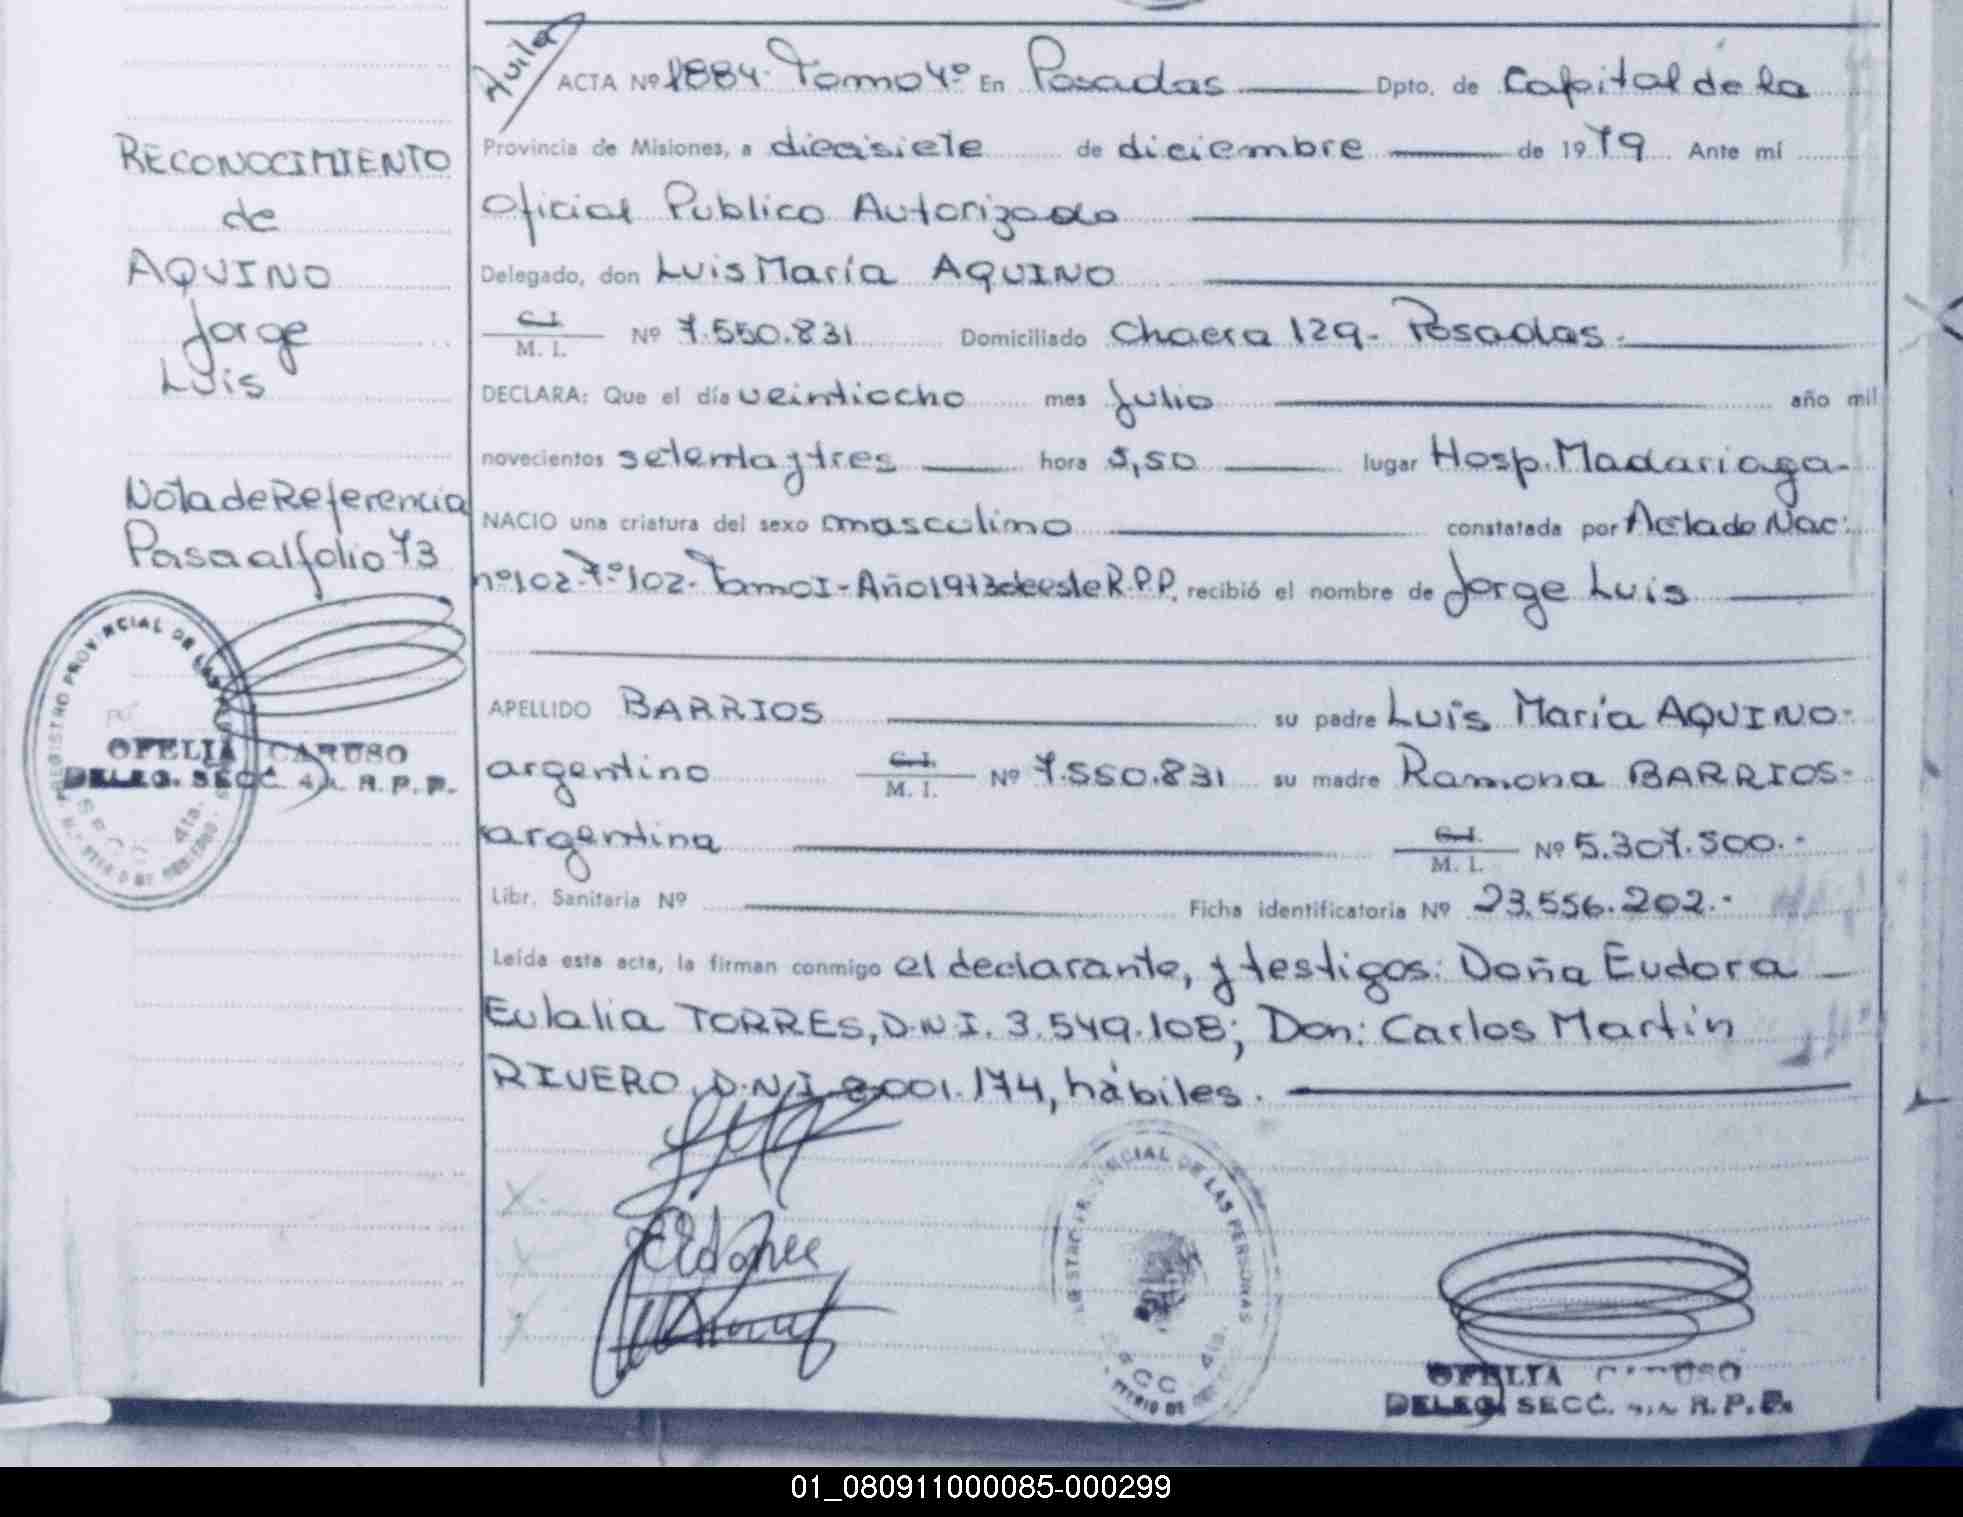 Avila
ACTA Nº 1884. Tomo 4º En Posadas Dpto. de Capital de la
Provincia de Misiones, a diecisiete de diciembre de 1979 Ante mí
Oficial Publico Autorizado
Delegado, don Luis María AQUINO
C.I. M. I. Nº 7.550.831 Domiciliado Chacra 129- Posadas.
DECLARA: Que el día veintiocho mes Julio año mil
novecientos setenta y tres hora 5,50 lugar Hosp. Madariaga.
NACIO una criatura del sexo masculino constatada por Acta de Nac:
nº102-Fº102-Tomo I-Año1973 de este R.P.P. recibió el nombre de Jorge Luis
APELLIDO BARRIOS su padre Luis María AQUINO-
argentino C.I. M. I. Nº 7.550.831 su madre Ramona BARRIOS-
argentina C.I. M. I. Nº 5.307.500.-
Libr. Sanitaria Nº Ficha identificatoria Nº 23.556.202.-
Leída esta acta, la firman conmigo el declarante, y testigos: Doña Eudora
Eulalia TORRES, D.N.I. 3.549.108; Don: Carlos Martín
RIVERO, D.N.I 8.001.174, hábiles.
RECONOCIMIENTO
de
AQUINO
Jorge
Luis
Nota de Referencia
Pasa al folio 73
REGISTRO PROVINCIAL DE LAS
OFELIA CARUSO
DELEG. SECC. 4a. R. P. P.
SECC. 4ta.
REGISTRO PROVINCIAL DE LAS PERSONAS
SECC. 4ta.
OFELIA CARUSO
DELEG. SECC. R. P. P.
01_080911000085-000299